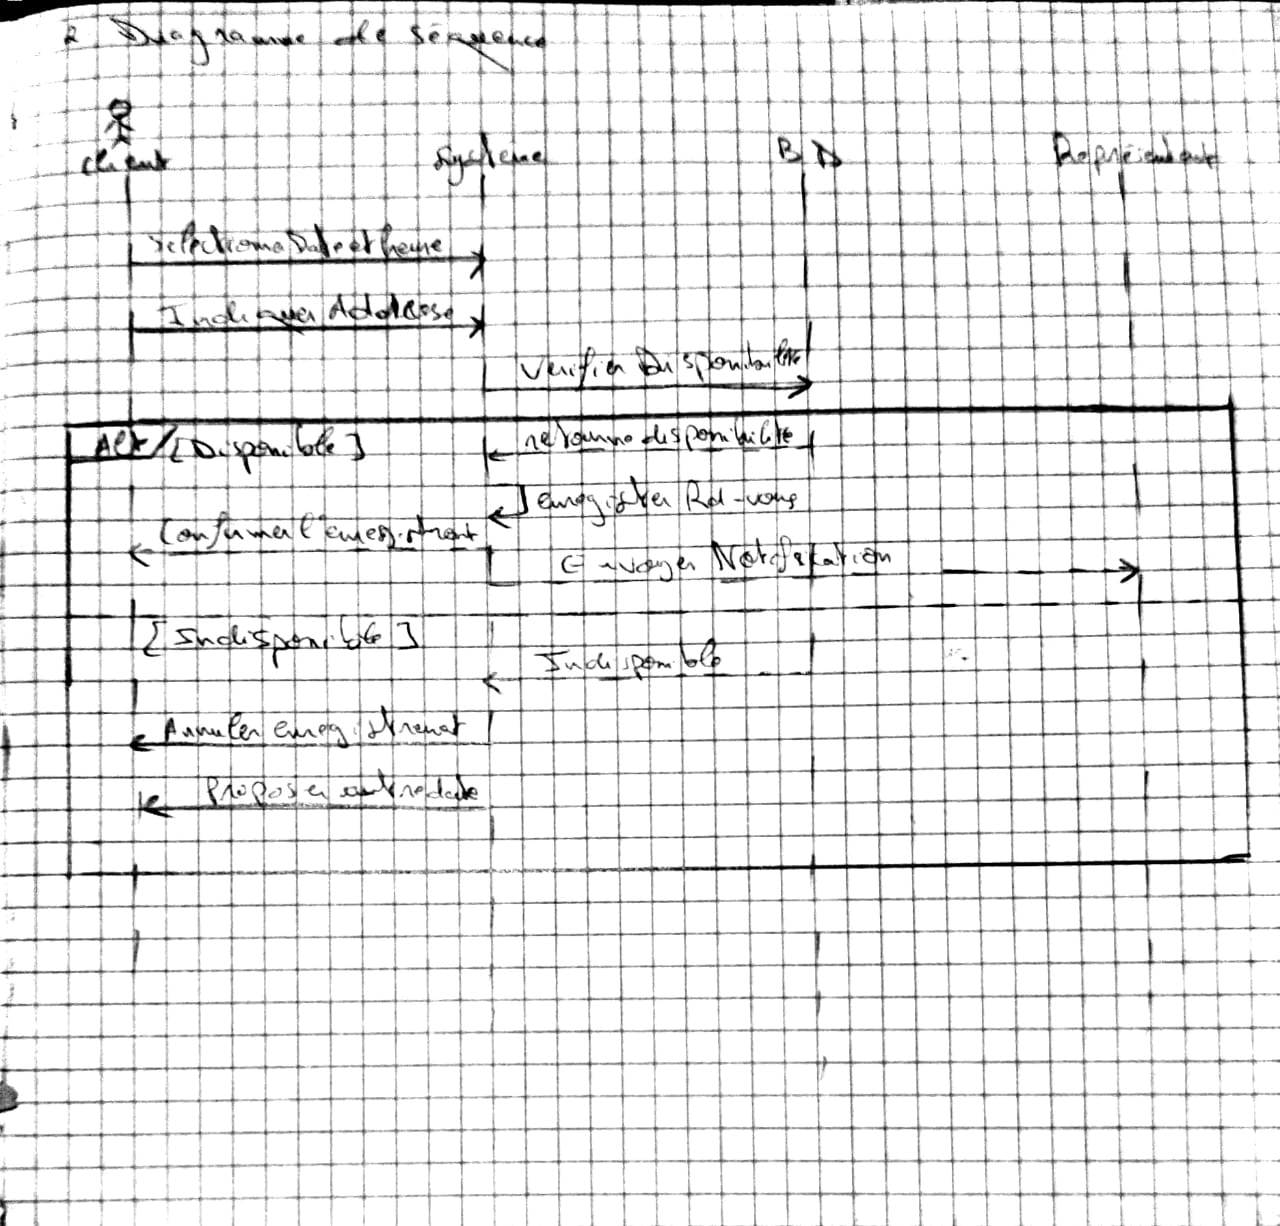 2 Diagramme de séquence
client
Système
BD
Représentant
selectionna Date et heure
Indiquer Addresse
Verifier Disponibilité
Alt [Disponible]
retourne disponibilité
enregistrer Rd-vous
Confirmer l'enregistrment
Envoyer Notification
[Indisponible]
Indisponible
Annuler enregistrement
Proposer autre date